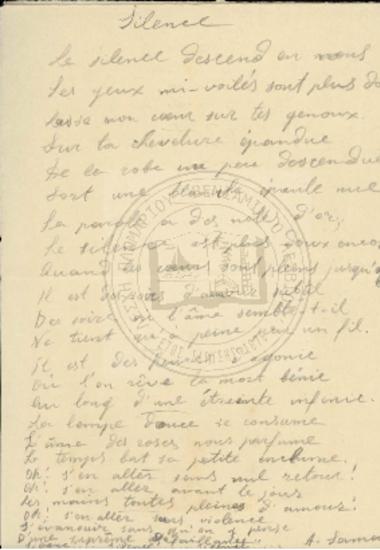 Silence
Le silence descend en nous
Les yeux mi-voilés sont plus do
Laisse mon cœur sur tes genoux.
Sur la chevelure épandue
De la robe un peu descendue
Sort une blanche épaule nue
La parole a des notes d'or;
Le silence est plus doux encor
Quand les cœurs sont pleins jusqu'
Il est des soirs d'amour subtil
Des soirs où l'âme semble-t-il
Ne tient qu'à peine par un fil.
Il est des agonie
Où l'on rêve la mort bénie
Au long d'une étreinte infinie.
La lampe douce se consume
L'âme des roses nous parfume
Le temps bat sa petite enclume.
Oh! s'en aller sans nul retour!
Oh! s'en aller avant le jour
Les mains toutes pleines d'amour!
Oh! s'en aller sans violence
S'évanouir sans qu'on y pense
D'une suprême défaillance
A. Samai